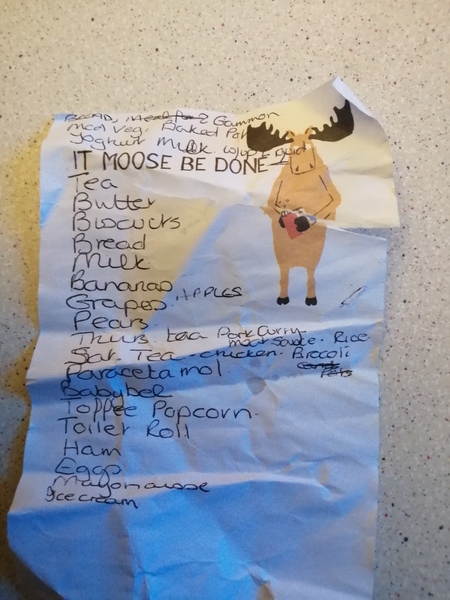 BREAD, Gammon
Med Veg. Baked Pot
Yoghurt Milk
IT MOOSE BE DONE
Tea
Butter
Biscuits
Bread
Milk
Bananas
Grapes. APPLES
Pears.
Thurs. tea Pork Curry
meat sauce. Rice
Sat. Tea. chicken. Brocoli
Paracetamol.
Babybel
Toffee Popcorn.
Toilet Roll
Ham
Eggs
Mayonaisse
Ice cream